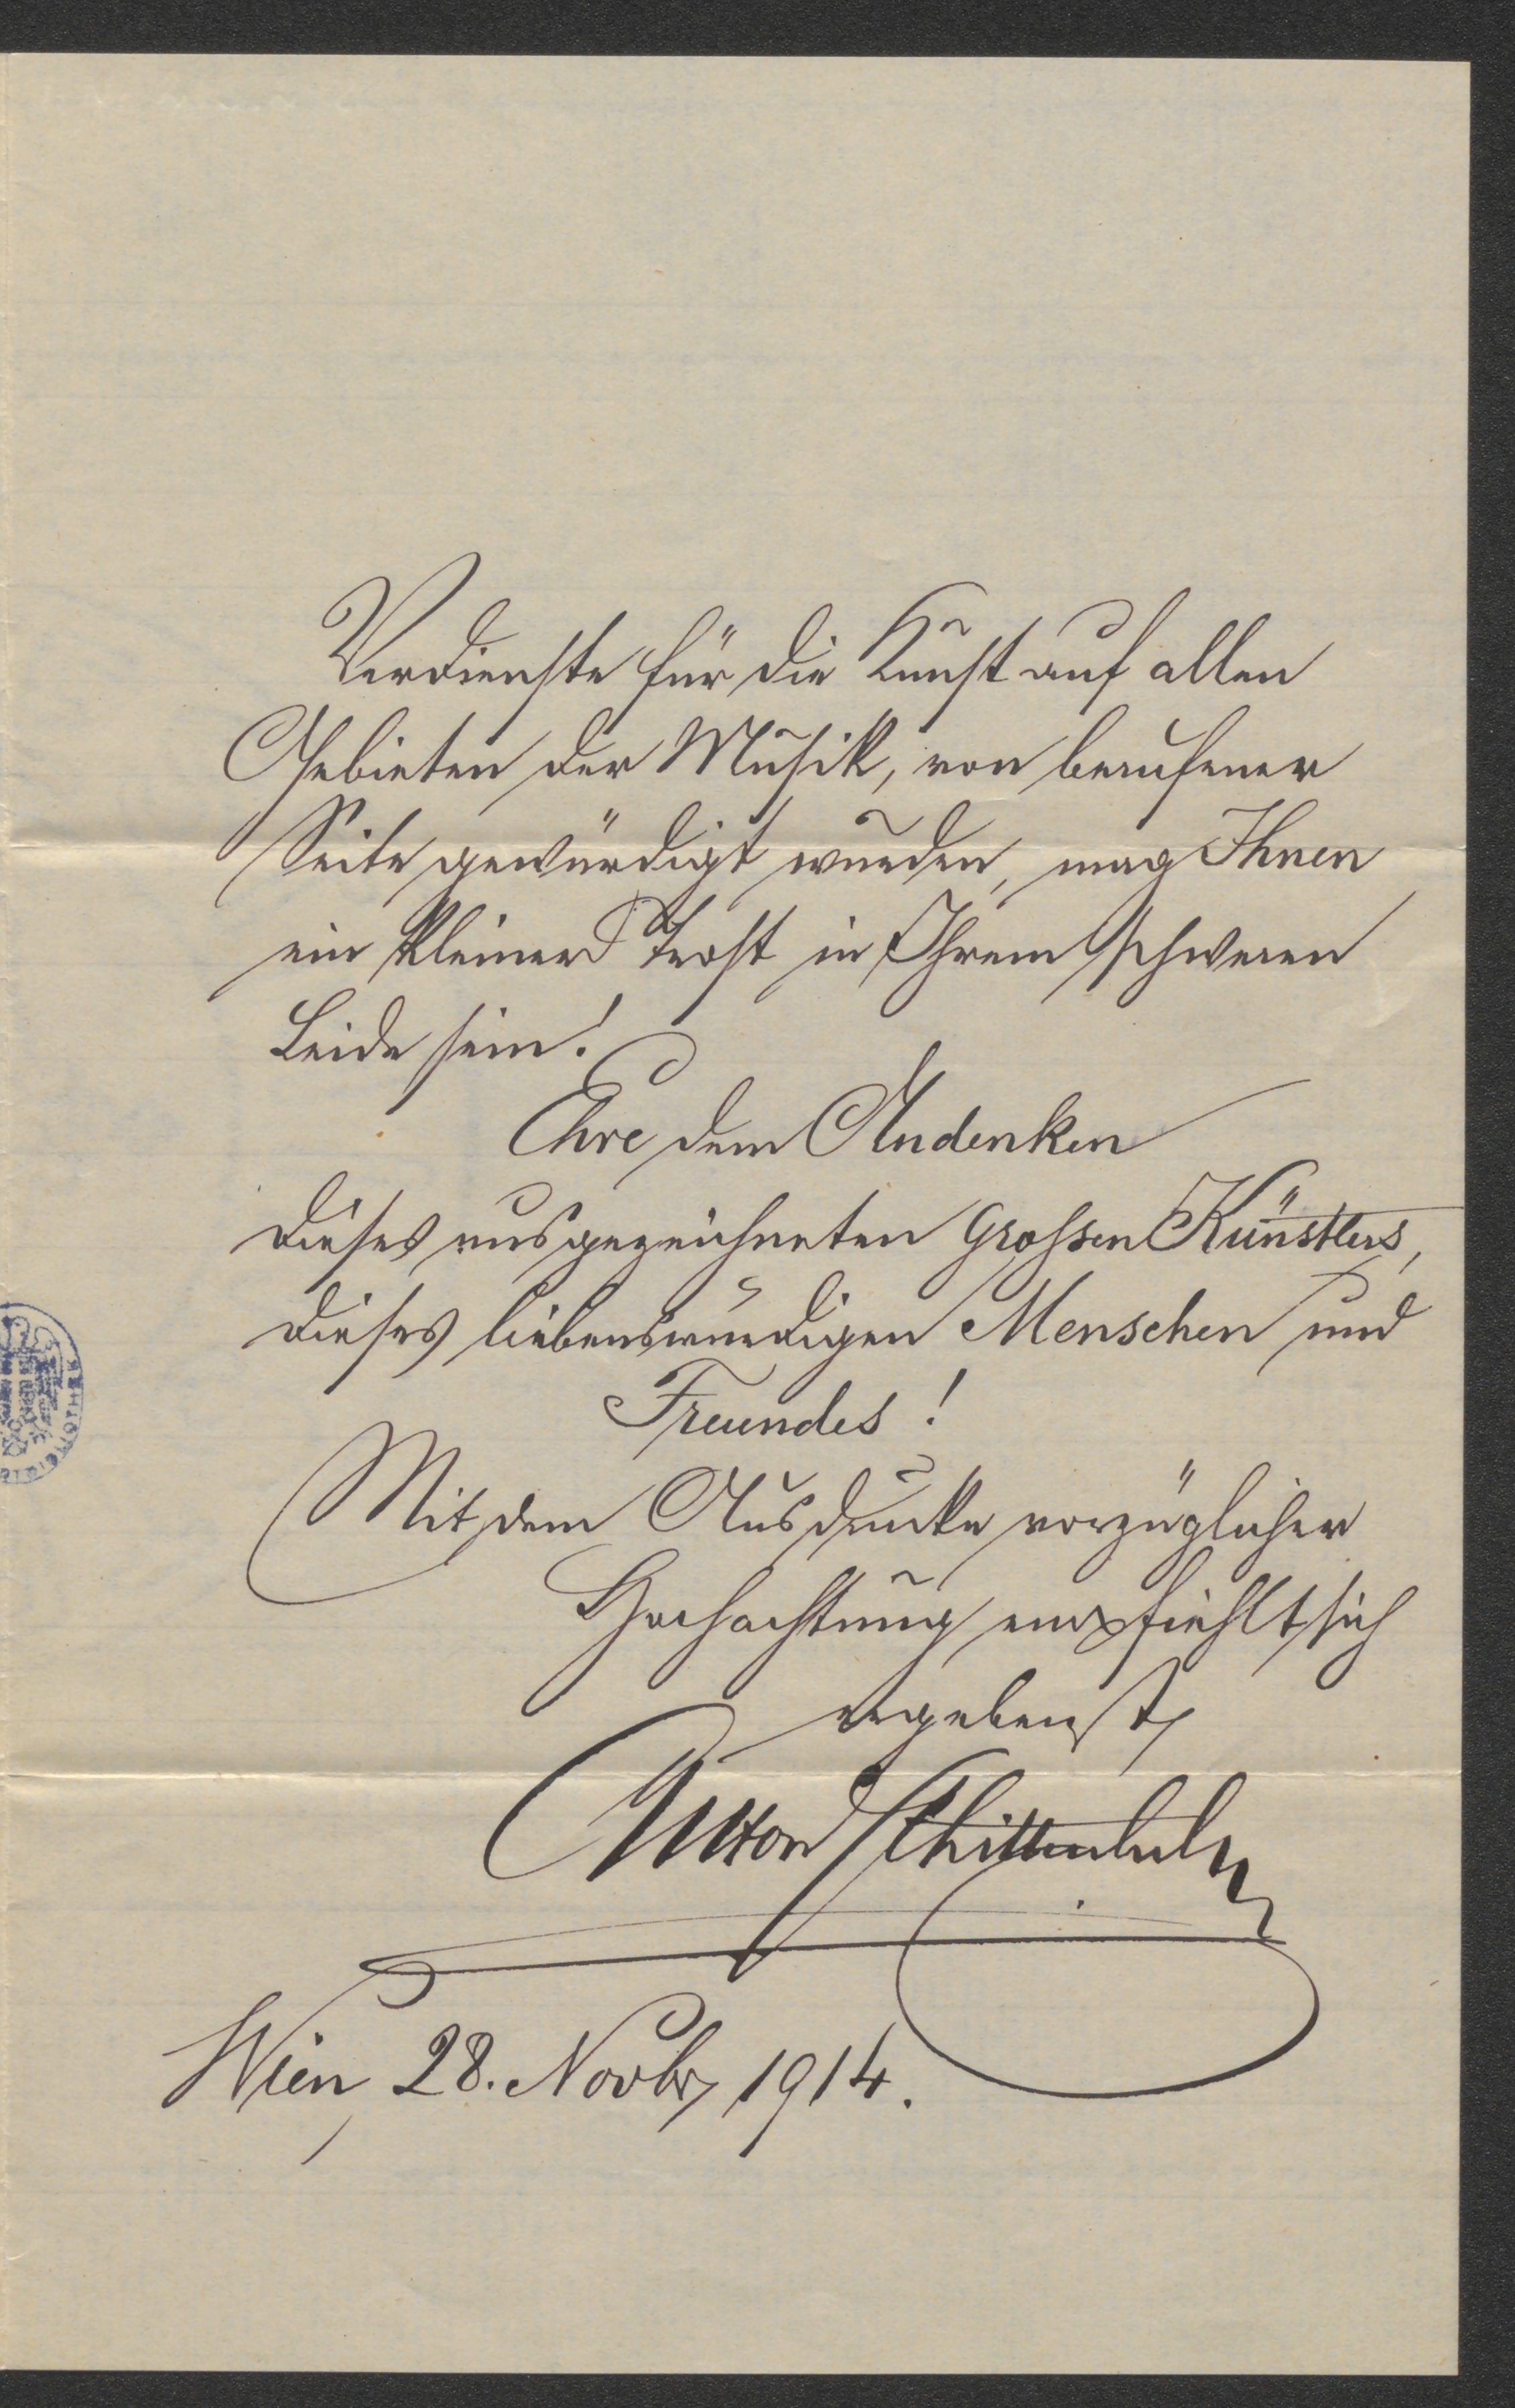 Verdienste für die Kunst auf allen
Gebieten der Musik, von berufener
Seite gewürdigt wurden, mag Ihnen
ein kleiner Trost in Ihrem schweren
Leide sein!
Ehre dem Andenken
dieses ausgezeichneten Grossen Künstlers,
dieses liebenswürdigen Menschen und
Freundes!
Mit dem Ausdrucke vorzüglicher
Hochachtung empfiehlt sich
ergebenst
Anton Schittenhelm
Wien 28. Novbr 1914.